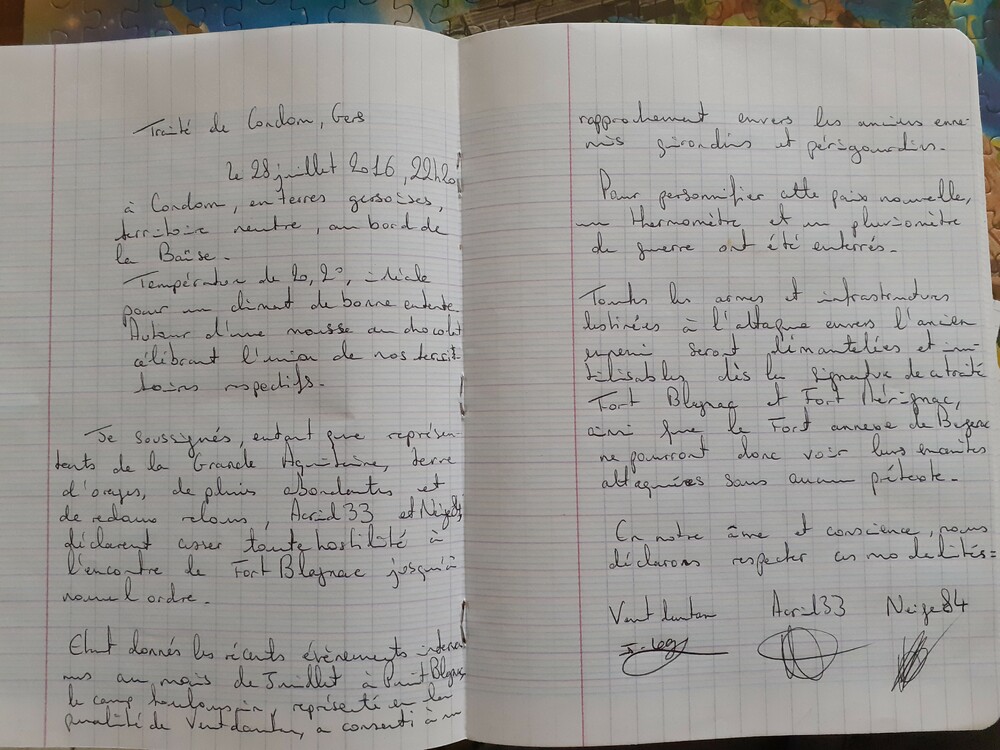 Traité de Condom, Gers
le 28 juillet 2016, 22h20
à Condom, en terres gersoises,
territoire neutre, au bord de
la Baïse.
Température de 20,2°, idéale
pour un climat de bonne entente
Autour d'une mousse au chocolat
célébrant l'union de nos territ-
toires respectifs.
Je soussignés, entant que représen-
tents de la Grande Aquitaine, terre
d'orages, de pluies abondantes et
de redoux, Acrid33 et Neige84,
déclarent cesser toute hostilité à
l'encontre de Fort Blagnac jusqu'à
nouvel ordre.
Etant donnés les récents évènements interve-
nus au mois de Juillet à Blagnac
le camp toulousain, représenté en la
qualité de Ventdautan, a consenti à un
rapprochement envers les anciens enne-
mis girondins et périgourdins.
Pour personnifier cette paix nouvelle,
un thermomètre et un pluviomètre
de guerre ont été enterrés.
Toutes les armes et infrastructures
destinées à l'attaque envers l'ancien
ennemi seront démantelées et inu-
tilisables dès la signature de ce traité
Fort Blagnac et Fort Mérignac,
ainsi que le Fort annexe de
ne pourront donc voir leurs enceintes
attaquées sans aucun prétexte.
En notre âme et conscience, nous
déclarons respecter ces modalités:
Vent dautan Acrid33 Neige84